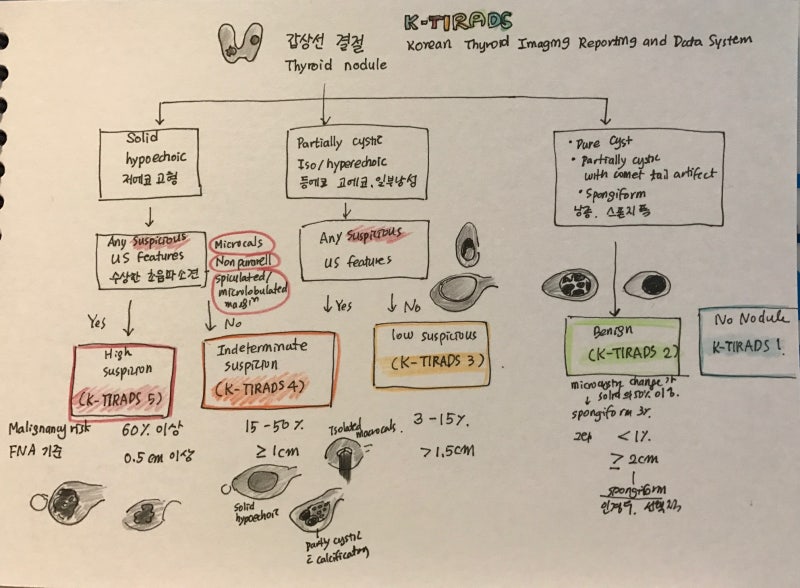 K-TIRADS
갑상선 결절
Korean Thyroid Imaging Reporting and Data System
Thyroid nodule
Solid
hypoechoic
저에코 고형
Partially cystic
Iso/hyperechoic
등에코 고에코, 일부낭성
• Pure cyst
• Partially cystic
with comet tail artifact
• Spongiform
낭종, 스폰지폼
Any suspicious
US features
수상한 초음파소견
Microcals
Non pararell
Spiculated/
microlobulated
margin
Any Suspicious
US features
Yes
No
Yes
No
High
suspicion
(K-TIRADS 5)
Indeterminate
suspicion
(K-TIRADS 4)
low suspicious
(K-TIRADS 3)
Benign
(K-TIRADS 2)
No Nodule
K-TIRADS 1
Malignancy risk
60% 이상
15-50%
3-15%
FNA 기준
0.5cm 이상
≥ 1cm
>1.5cm
Isolated macrocals.
microcystic change가
solid의 50% 이상.
spongiform
< 1%
≥ 2cm
spongiform
Solid
hypoechoic
partly cystic
calcification